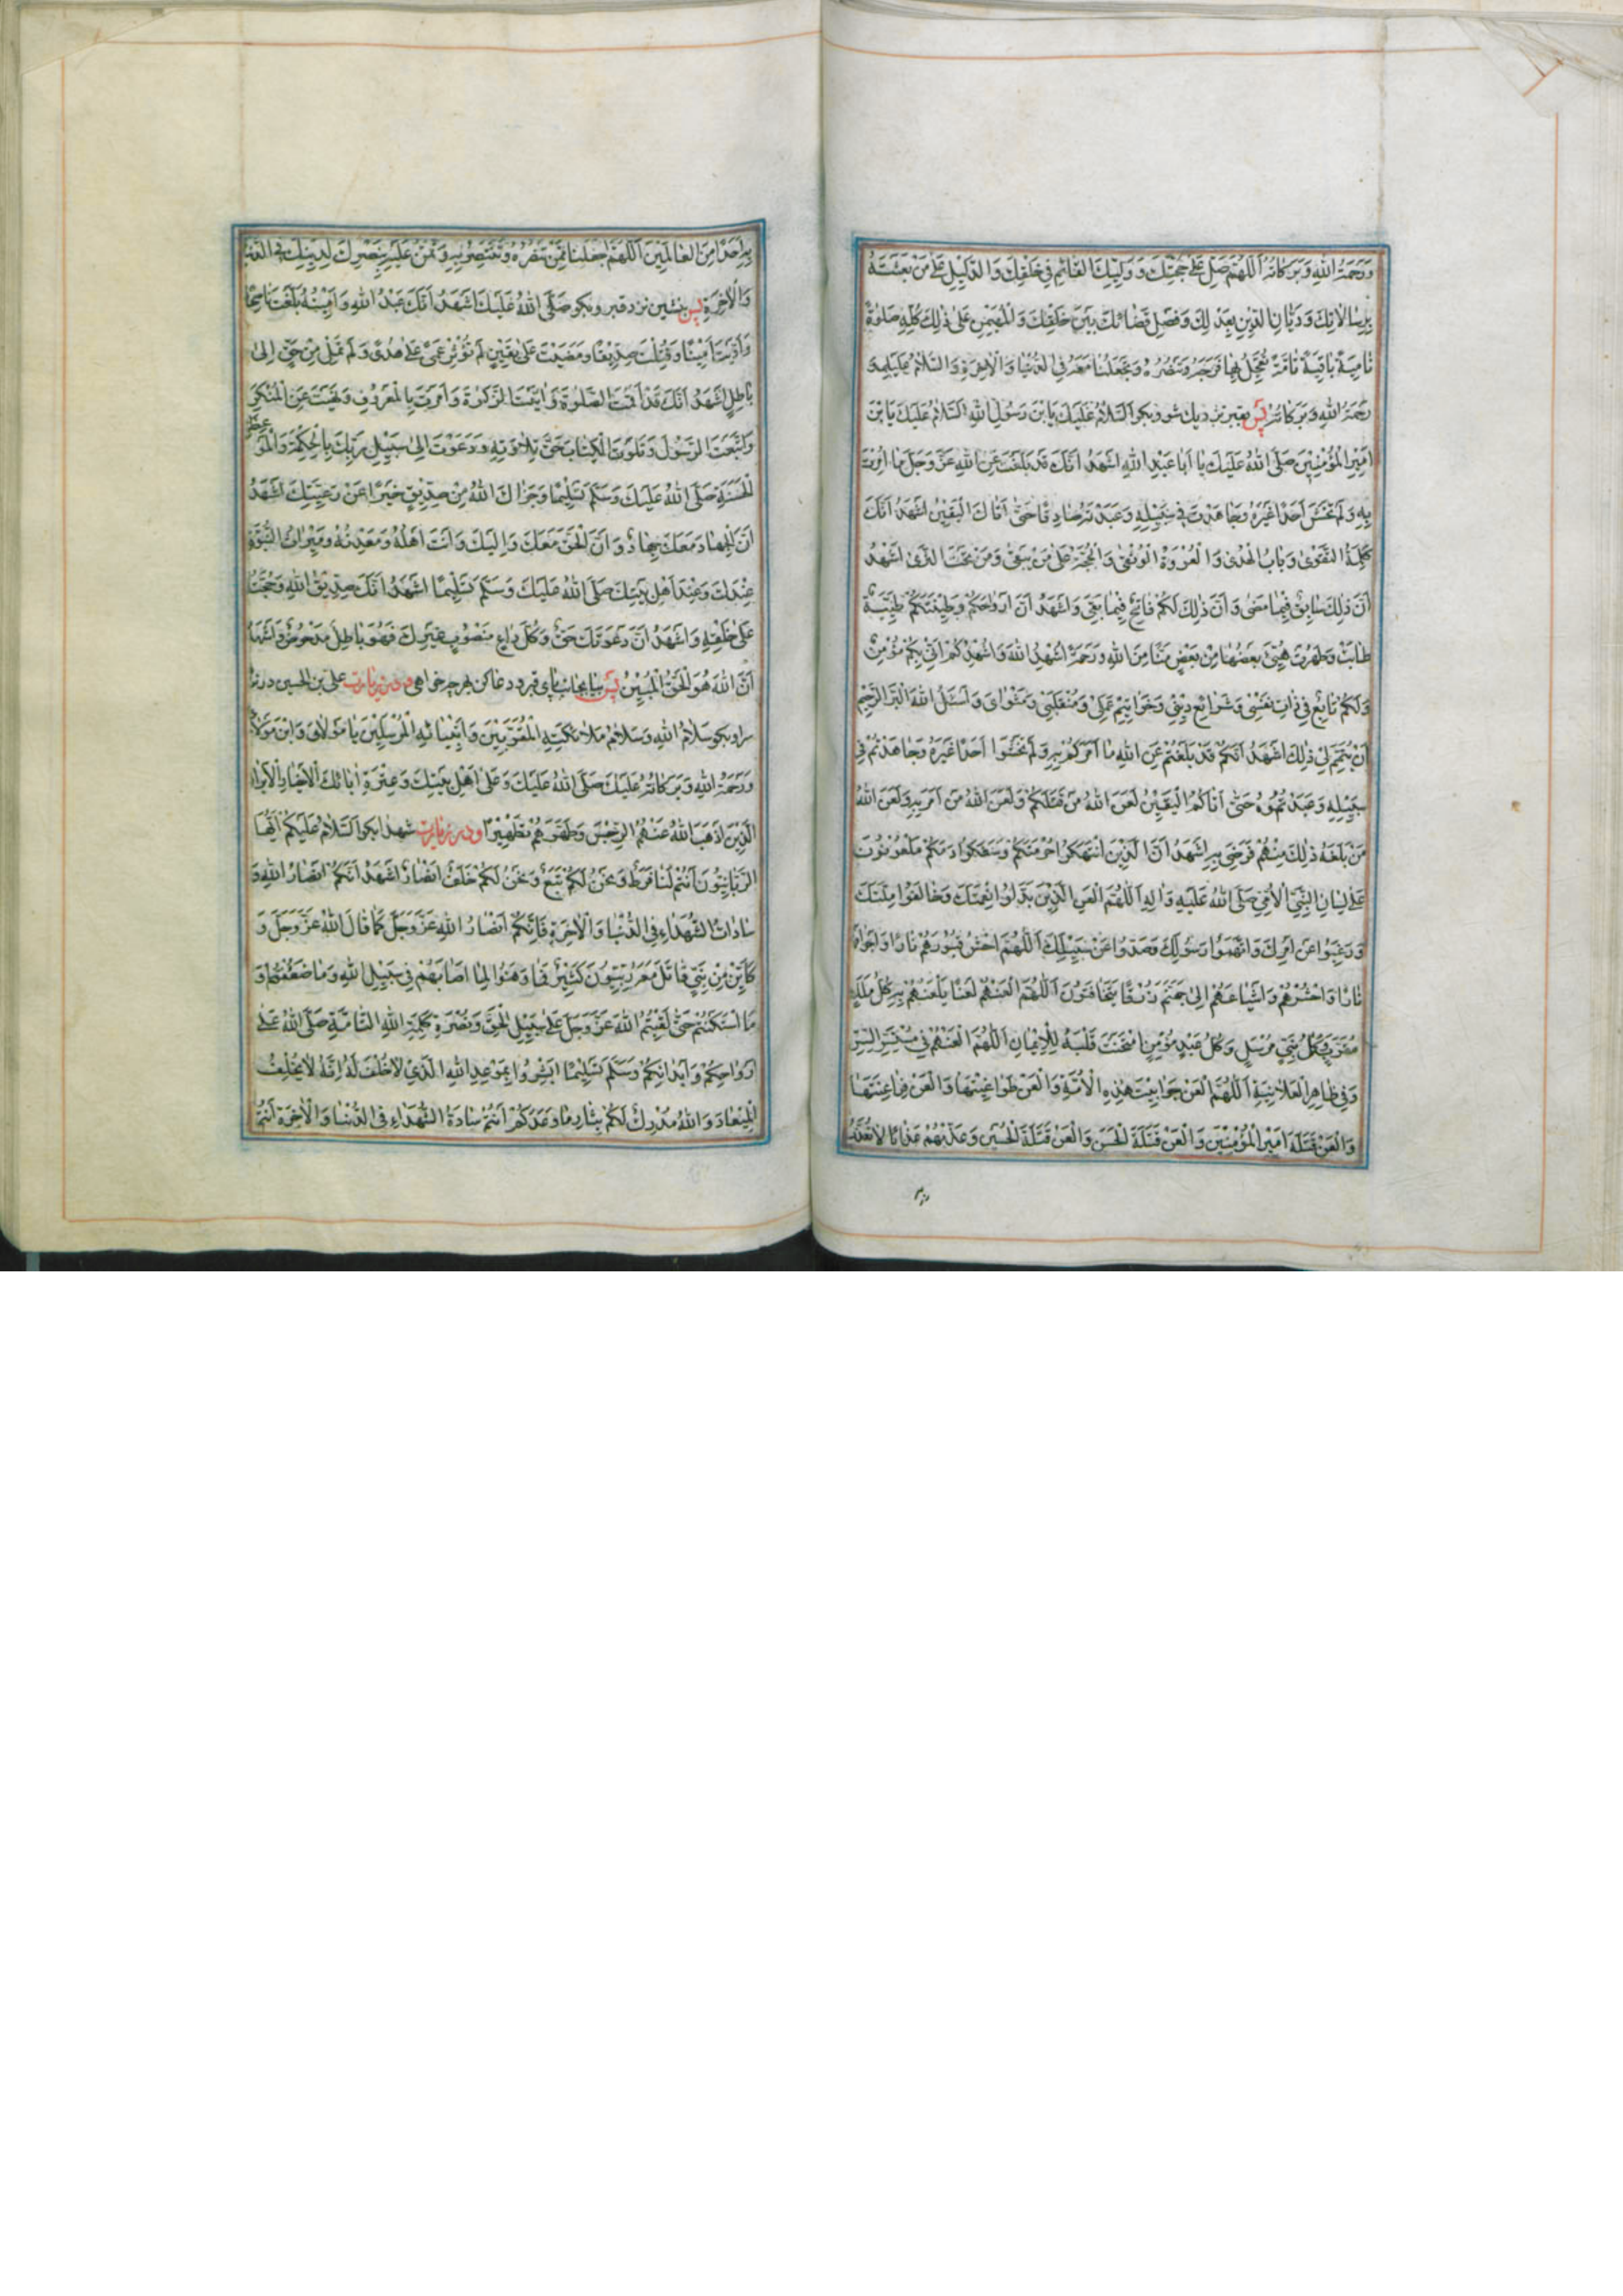 وَرَحْمَةُ اللهِ وَبَرَكاتُهُ اَللّهُمَّ صَلِّ عَلى حُجَّتِكَ وَوَلِيِّكَ القائِمِ فِي خَلْقِكَ وَالدَّلِيلِ عَلى مَنْ بَعَثْتَهُ
بِرِسالاتِكَ وَدَيّانِ الدِّينِ بِعَدْلِكَ وَفَصْلِ قَضائِكَ بَيْنَ خَلْقِكَ وَالْمُهَيْمِنِ عَلى ذلِكَ كُلِّهِ صَلوةً
نامِيَةً باقِيَةً تامَّةً تُعَجِّلُ بِها فَرَجَهُ وَتَنْصُرُهُ وَتَجْعَلُنا مَعَهُ فِي الدُّنْيا وَالْاخِرَةِ وَالسَّلامُ عَلَيْهِ وَ
رَحْمَةُ اللهِ وَبَرَكاتُهُ پس بقبر نزديك شو و بكو اَلسَّلامُ عَلَيْكَ يَا بْنَ رَسُولِ اللهِ اَلسَّلامُ عَلَيْكَ يَا بْنَ
اَمِيرِ الْمُؤْمِنِينَ صَلَّى اللهُ عَلَيْكَ يا اَبا عَبْدِ اللهِ اَشْهَدُ اَنَّكَ قَدْ بَلَّغْتَ عَنِ اللهِ عَزَّ وَجَلَّ ما اُمِرْتَ
بِهِ وَلَمْ تَخْشَ اَحَدًا غَيْرَهُ وَجاهَدْتَ فِي سَبِيلِهِ وَعَبَدْتَهُ صادِقًا حَتّى اَتاكَ الْيَقِينُ اَشْهَدُ اَنَّكَ
كَلِمَةُ التَّقْوى وَبابُ الْهُدى وَالْعُرْوَةُ الْوُثْقى وَالْحُجَّةُ عَلى مَنْ يَبْقى وَمَنْ تَحْتَ الثَّرى اَشْهَدُ
اَنَّ ذلِكَ سابِقٌ فِيما مَضى وَاَنَّ ذلِكَ لَكُمْ فاتِحٌ فِيما بَقِيَ وَاَشْهَدُ اَنَّ اَرْواحَكُمْ وَطِينَتَكُمْ طَيِّبَةٌ
طابَتْ وَطَهُرَتْ هِيَ بَعْضُها مِنْ بَعْضٍ مَنًّا مِنَ اللهِ وَرَحْمَةً اُشْهِدُ اللهَ وَاُشْهِدُكُمْ اَنِّي بِكُمْ مُؤْمِنٌ
وَلَكُمْ تابِعٌ فِي ذاتِ نَفْسِي وَشَرائِعِ دِينِي وَخَواتِيمِ عَمَلِي وَمُنْقَلَبِي وَمَثْوايَ وَاَسْئَلُ اللهَ الْبَرَّ الرَّحِيمَ
اَنْ يُتَمِّمَ لِي ذلِكَ اَشْهَدُ اَنَّكُمْ قَدْ بَلَّغْتُمْ عَنِ اللهِ ما اَمَرَكُمْ بِهِ وَلَمْ تَخْشَوْا اَحَدًا غَيْرَهُ وَجاهَدْتُمْ فِي
سَبِيلِهِ وَعَبَدْتُمُوهُ حَتّى اَتاكُمُ الْيَقِينُ لَعَنَ اللهُ مَنْ قَتَلَكُمْ وَلَعَنَ اللهُ مَنْ اَمَرَ بِهِ وَلَعَنَ اللهُ
مَنْ بَلَغَهُ ذلِكَ مِنْهُمْ فَرَضِيَ بِهِ اَشْهَدُ اَنَّ الَّذِينَ انْتَهَكُوا حُرْمَتَكُمْ وَسَفَكُوا دَمَكُمْ مَلْعُونُونَ
عَلى لِسانِ النَّبِيِّ الْاُمِّيِّ صَلَّى اللهُ عَلَيْهِ وَالِهِ اَللّهُمَّ الْعَنِ الَّذِينَ بَدَّلُوا نِعْمَتَكَ وَخالَفُوا مِلَّتَكَ
وَرَغِبُوا عَنْ اَمْرِكَ وَاتَّهَمُوا رَسُولَكَ وَصَدُّوا عَنْ سَبِيلِكَ اَللّهُمَّ احْشُ قُبُورَهُمْ نارًا وَاَجْوافَهُمْ
نارًا وَاحْشُرْهُمْ وَاَشْياعَهُمْ اِلى جَهَنَّمَ زُرْقًا يَتَخافَتُونَ اَللّهُمَّ الْعَنْهُمْ لَعْنًا يَلْعَنُهُمْ بِهِ كُلُّ مَلَكٍ
مُقَرَّبٍ وَكُلُّ نَبِيٍّ مُرْسَلٍ وَكُلُّ عَبْدٍ مُؤْمِنٍ امْتَحَنْتَ قَلْبَهُ لِلْاِيمانِ اَللّهُمَّ الْعَنْهُمْ فِي مُسْتَسِرِّ السِّرِّ
وَفِي ظاهِرِ الْعَلانِيَةِ اَللّهُمَّ الْعَنْ جَوابِيتَ هذِهِ الْاُمَّةِ وَالْعَنْ طَواغِيتَها وَالْعَنْ فَراعِنَتَها
وَالْعَنْ قَتَلَةَ اَمِيرِ الْمُؤْمِنِينَ وَالْعَنْ قَتَلَةَ الْحَسَنِ وَالْعَنْ قَتَلَةَ الْحُسَيْنِ وَعَذِّبْهُمْ عَذابًا لا تُعَذِّبُ
بِهِ اَحَدًا مِنَ الْعالَمِينَ اَللّهُمَّ اجْعَلْنا مِمَّنْ تَنْصُرُهُ وَتَنْتَصِرُ بِهِ وَتَمُنُّ عَلَيْهِ بِنَصْرِكَ لِدِينِكَ فِي الدُّنْيا
وَالْاخِرَةِ پس بنشين نزد قبر و بكو صَلَّى اللهُ عَلَيْكَ اَشْهَدُ اَنَّكَ عَبْدُ اللهِ وَاَمِينُهُ بَلَّغْتَ ناصِحًا
وَاَدَّيْتَ اَمِينًا وَقُتِلْتَ صِدِّيقًا وَمَضَيْتَ عَلى يَقِينٍ لَمْ تُؤْثِرْ عَمًى عَلى هُدًى وَلَمْ تَمِلْ مِنْ حَقٍّ اِلى
باطِلٍ اَشْهَدُ اَنَّكَ قَدْ اَقَمْتَ الصَّلوةَ وَاتَيْتَ الزَّكوةَ وَاَمَرْتَ بِالْمَعْرُوفِ وَنَهَيْتَ عَنِ الْمُنْكَرِ
وَاتَّبَعْتَ الرَّسُولَ وَتَلَوْتَ الْكِتابَ حَقَّ تِلاوَتِهِ وَدَعَوْتَ اِلى سَبِيلِ رَبِّكَ بِالْحِكْمَةِ وَالْمَوْعِظَةِ
الْحَسَنَةِ صَلَّى اللهُ عَلَيْكَ وَسَلَّمَ تَسْلِيمًا وَجَزاكَ اللهُ مِنْ صِدِّيقٍ خَيْرًا عَنْ رَعِيَّتِكَ اَشْهَدُ
اَنَّ الْجِهادَ مَعَكَ جِهادٌ وَاَنَّ الْحَقَّ مَعَكَ وَاِلَيْكَ وَاَنْتَ اَهْلُهُ وَمَعْدِنُهُ وَمِيراثُ النُّبُوَّةِ
عِنْدَكَ وَعِنْدَ اَهْلِ بَيْتِكَ صَلَّى اللهُ عَلَيْكَ وَسَلَّمَ تَسْلِيمًا اَشْهَدُ اَنَّكَ صِدِّيقُ اللهِ وَحُجَّتُهُ
عَلى خَلْقِهِ وَاَشْهَدُ اَنَّ دَعْوَتَكَ حَقٌّ وَكُلُّ داعٍ مَنْصُوبٍ غَيْرِكَ فَهُوَ باطِلٌ مَدْحُوضٌ وَاَشْهَدُ
اَنَّ اللهَ هُوَ الْحَقُّ الْمُبِينُ پس بيا بجانب پاى قبر و دعا كن بهرچه خواهى و در زيارت على بن الحسين در نزد
سر او بكو سَلامُ اللهِ وَسَلامُ مَلائِكَتِهِ الْمُقَرَّبِينَ وَاَنْبِيائِهِ الْمُرْسَلِينَ يا مَوْلايَ وَابْنَ مَوْلايَ
وَرَحْمَةُ اللهِ وَبَرَكاتُهُ عَلَيْكَ صَلَّى اللهُ عَلَيْكَ وَعَلى اَهْلِ بَيْتِكَ وَعِتْرَةِ ابائِكَ الْاَخْيارِ الْاَبْرارِ
الَّذِينَ اَذْهَبَ اللهُ عَنْهُمُ الرِّجْسَ وَطَهَّرَهُمْ تَطْهِيرًا و در زيارت شهدا بكو اَلسَّلامُ عَلَيْكُمْ اَيُّهَا
الرَّبّانِيُّونَ اَنْتُمْ لَنا فَرَطٌ وَنَحْنُ لَكُمْ تَبَعٌ وَنَحْنُ لَكُمْ خَلَفٌ اَنْصارٌ اَشْهَدُ اَنَّكُمْ اَنْصارُ اللهِ وَ
ساداتُ الشُّهَداءِ فِي الدُّنْيا وَالْاخِرَةِ فَاِنَّكُمْ اَنْصارُ اللهِ عَزَّ وَجَلَّ كَما قالَ اللهُ عَزَّ وَجَلَّ وَ
كَاَيِّنْ مِنْ نَبِيٍّ قاتَلَ مَعَهُ رِبِّيُّونَ كَثِيرٌ فَما وَهَنُوا لِما اَصابَهُمْ فِي سَبِيلِ اللهِ وَما ضَعُفْتُمْ وَ
مَا اسْتَكَنْتُمْ حَتّى لَقِيتُمُ اللهَ عَزَّ وَجَلَّ عَلى سَبِيلِ الْحَقِّ وَنُصْرَةِ كَلِمَةِ اللهِ التّامَّةِ صَلَّى اللهُ عَلى
اَرْواحِكُمْ وَاَبْدانِكُمْ وَسَلَّمَ تَسْلِيمًا اَبْشِرُوا بِمَوْعِدِ اللهِ الَّذِي لا خُلْفَ لَهُ اِنَّهُ لا يُخْلِفُ
الْمِيعادَ وَاللهُ مُدْرِكٌ لَكُمْ بِثارِ ما وَعَدَكُمْ اَنْتُمْ سادَةُ الشُّهَداءِ فِي الدُّنْيا وَالْاخِرَةِ اَنْتُمُ